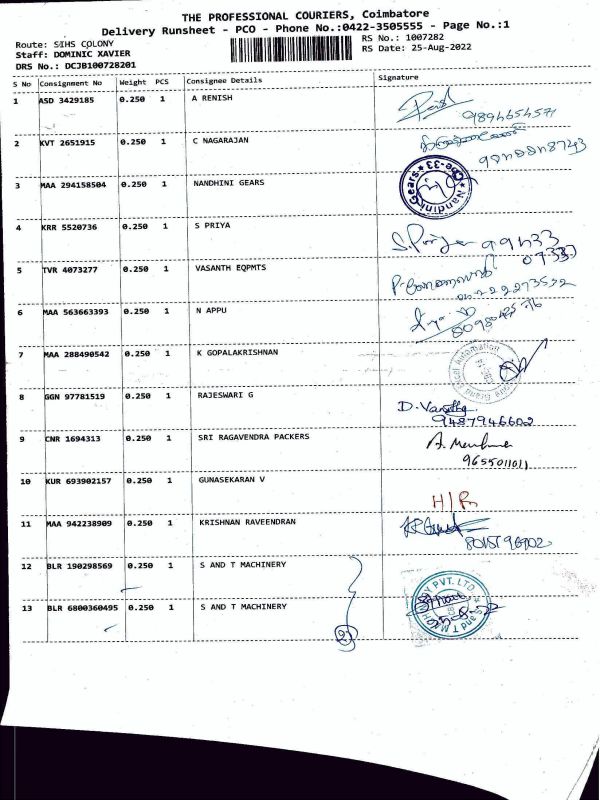 THE PROFESSIONAL COURIERS, Coimbatore
Delivery Runsheet - PCO - Phone No.:0422-3505555 - Page No.:1
Route: SIHS COLONY
RS No.: 1007282
Staff: DOMINIC XAVIER
RS Date: 25-Aug-2022
DRS No.: DCJB100728201
S No Consignment No Weight PCS Consignee Details Signature
1 ASD 3429185 0.250 1 A RENISH
9894654571
2 KVT 2651915 0.250 1 C NAGARAJAN
3 MAA 294158504 0.250 1 NANDHINI GEARS
4 KRR 5520736 0.250 1 S PRIYA
S. Priya
5 TVR 4073277 0.250 1 VASANTH EQPMTS
6 MAA 563663393 0.250 1 N APPU
7 MAA 288490542 0.250 1 K GOPALAKRISHNAN
8 GGN 97781519 0.250 1 RAJESWARI G
9487946602
9 CNR 1694313 0.250 1 SRI RAGAVENDRA PACKERS
9655011011
10 KUR 693902157 0.250 1 GUNASEKARAN V
H/R
11 MAA 942238909 0.250 1 KRISHNAN RAVEENDRAN
12 BLR 190298569 0.250 1 S AND T MACHINERY
13 BLR 6800360495 0.250 1 S AND T MACHINERY
2